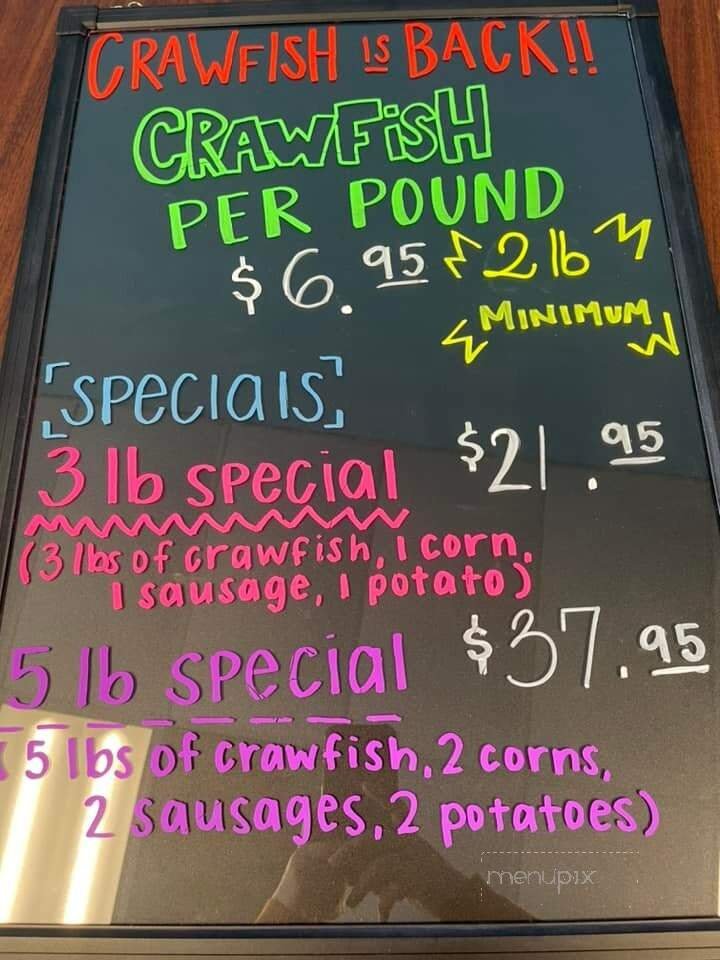 CRAWFISH IS BACK!!
CRAWFISH
PER POUND
$6.95 2 lb
MINIMUM
[SPECIALS]
3 lb SPECIAL $21.95
(3 lbs of crawfish, 1 corn,
1 sausage, 1 potato)
5 lb SPECIAL $37.95
(5 lbs of crawfish, 2 corns,
2 sausages, 2 potatoes)
menupix